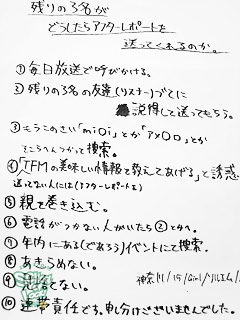 残りの3名が
どうしたらアフターレポートを
送ってくれるのか。
①毎日放送で呼びかける。
②残りの3名の友達(リスナー)づてに
説得して送ってもらう。
③もうこのさい「mixi」とか「アメブロ」とか
そこらへんつかって捜索。
④「TFMの美味しい情報を教えてあげる」と誘惑
送ってない人には(アフターレポートを)
⑤親を巻き込む。
⑥電話がつかない人がいたら②とかへ
⑦年内にある(であろう)イベントにて捜索。
⑧あきらめない。
⑨
⑩連帯責任です。申し分けございませんでした。
神奈川/15/Girl/